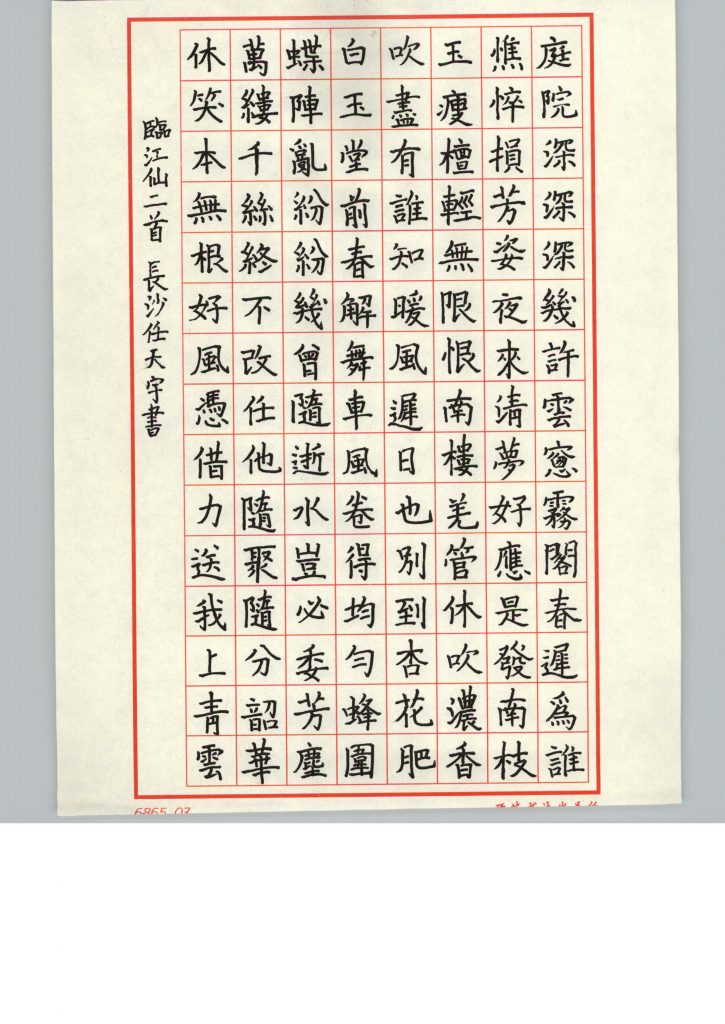 庭院深深深幾許雲窻霧閣春遲爲誰
憔悴損芳姿夜來清夢好應是發南枝
玉瘦檀輕無限恨南樓羌管休吹濃香
吹盡有誰知暖風遲日也別到杏花肥
白玉堂前春解舞車風卷得均勻蜂圍
蝶陣亂紛紛幾曾隨逝水豈必委芳塵
萬縷千絲終不改任他隨聚隨分韶華
休笑本無根好風憑借力送我上青雲
臨江仙二首 長沙任天宇書
6865-07